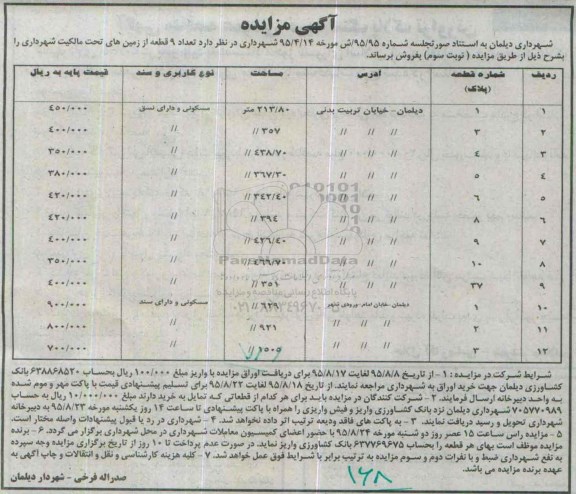 آگهی مزایده
شهرداری دیلمان به استناد صورتجلسه شماره ۹۵/۹۵/ش مورخه ۹۵/۴/۱۴ شهرداری در نظر دارد تعداد ۹ قطعه از زمین های تحت مالکیت شهرداری را
بشرح ذیل از طریق مزایده ( نوبت سوم) بفروش برساند.
ردیف شماره قطعه (پلاک) آدرس مساحت نوع کاربری و سند قیمت پایه به ریال
۱ ۱ دیلمان- خیابان تربیت بدنی ۲۱۳/۸۰ متر مسکونی و دارای نسق ۴۵۰/۰۰۰
۲ ۳ // // // ۳۵۷ // // ۴۰۰/۰۰۰
۳ ۴ // // // ۴۳۸/۷۰ // // ۳۵۰/۰۰۰
۴ ۵ // // // ۳۶۷/۳۰ // // ۳۸۰/۰۰۰
۵ ۶ // // // ۳۴۲/۴۰ // // ۴۲۰/۰۰۰
۶ ۸ // // // ۳۹۴ // // ۴۲۰/۰۰۰
۷ ۹ // // // ۴۲۶/۴۰ // // ۴۰۰/۰۰۰
۸ ۱۰ // // // ۴۶۹/۷۰ // // ۳۵۰/۰۰۰
۹ ۳۷ // // // ۳۵۱ // // ۴۰۰/۰۰۰
۱۰ ۱ دیلمان -خیابان امام-ورودی شهر ۹۲۹ // مسکونی و دارای سند ۹۰۰/۰۰۰
۱۱ ۲ // // // ۹۲۱ // // ۸۰۰/۰۰۰
۱۲ ۳ // // // // ۷۰۰/۰۰۰
شرایط شرکت در مزایده : ۱ - از تاریخ ۹۵/۸/۸ لغایت ۹۵/۸/۱۷ برای دریافت اوراق مزایده با واریز مبلغ ۱۰۰/۰۰۰ ریال بحساب ۶۳۸۸۶۸۵۲۰ بانک
کشاورزی دیلمان جهت خرید اوراق به شهرداری مراجعه نمایند. از تاریخ ۹۵/۸/۱۸ لغایت ۹۵/۸/۲۲ برای تسلیم پیشنهادی قیمت با پاکت مهر و موم شده
به واحد دبیرخانه ارسال فرمایند. ۲ - شرکت کنندگان در مزایده باید برای هر کدام از قطعاتی که تمایل به خرید دارند مبلغ ۱۰/۰۰۰/۰۰۰ ریال به حساب
۷۰۵۷۷۰۹۸۹ شهرداری دیلمان نزد بانک کشاورزی واریز و فیش واریزی را همراه با پاکت پیشنهادی تا ساعت ۱۴ روز یکشنبه مورخه ۹۵/۸/۲۳ به دبیرخانه
شهرداری تحویل و رسید دریافت نمایند. ۳ - به پاکت های فاقد ودیعه ترتیب اثر داده نخواهد شد. ۴ - شهرداری در رد یا قبول پیشنهادات واصله مختار است.
۵ - مزایده راس ساعت ۱۵ عصر روز دو شنبه مورخه ۹۵/۸/۲۴ با حضور اعضای کمیسیون معاملات شهرداری در محل شهرداری برگزار می گردد. ۶ - برنده
مزایده موظف است بهای هر قطعه را بحساب ۶۳۷۷۶۹۶۷۵ بانک کشاورزی واریز نماید. در صورت عدم پرداخت تا ۱۰ روز از تاریخ برگزاری مزایده وجه سپرده
به نفع شهرداری ضبط و با نفرات دوم و سوم مزایده به ترتیب برابر با شرایط فوق عمل خواهد شد. ۷ - کلیه هزینه کارشناسی و نقل و انتقالات و چاپ آگهی به
عهده برنده مزایده می باشد.
صدراله فرخی - شهردار دیلمان
۱۶۸